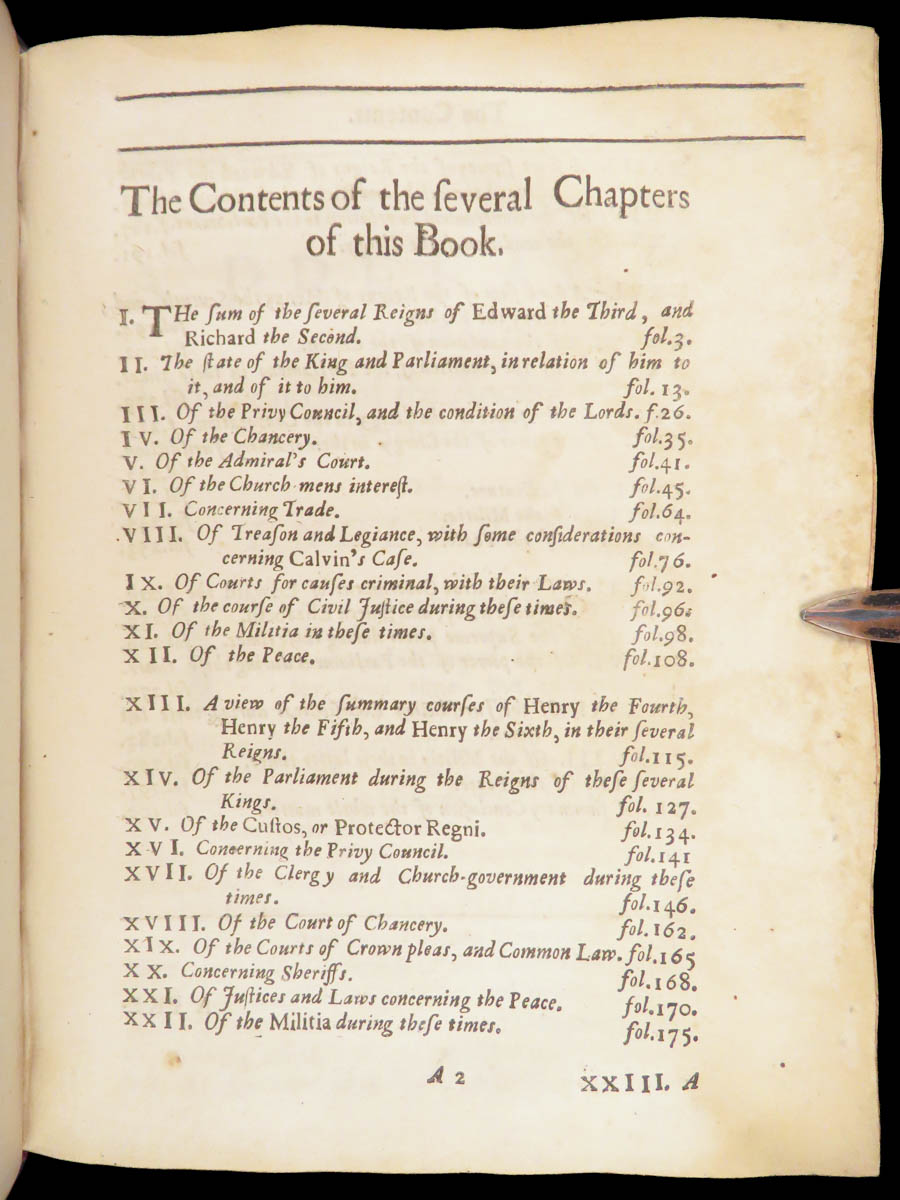 The Contents of the ſeveral Chapters
of this Book.
I. THe ſum of the ſeveral Reigns of Edward the Third, and
Richard the Second. fol.3.
II. The ſtate of the King and Parliament, in relation of him to
it, and of it to him. fol. 13.
III. Of the Privy Council, and the condition of the Lords. f.26.
IV. Of the Chancery. fol.35.
V. Of the Admiral's Court. fol.41.
VI. Of the Church-mens intereſt. fol.45.
VII. Concerning Trade. fol.64.
VIII. Of Treaſon and Legiance, with ſome conſiderations con-
cerning Calvin's Caſe. fol.76.
IX. Of Courts for cauſes criminal, with their Laws. fol.92.
X. Of the courſe of Civil Juſtice during theſe times. fol.96.
XI. Of the Militia in theſe times. fol.98.
XII. Of the Peace. fol.108.
XIII. A view of the ſummary courſes of Henry the Fourth,
Henry the Fifth, and Henry the Sixth, in their ſeveral
Reigns. fol.115.
XIV. Of the Parliament during the Reigns of theſe ſeveral
Kings. fol. 127.
XV. Of the Cuſtos, or Protector Regni. fol.134.
XVI. Concerning the Privy Council. fol.141
XVII. Of the Clergy and Church-government during theſe
times. fol.146.
XVIII. Of the Court of Chancery. fol.162.
XIX. Of the Courts of Crown pleas, and Common Law. fol.165
XX. Concerning Sheriffs. fol.168.
XXI. Of Juſtices and Laws concerning the Peace. fol.170.
XXII. Of the Militia during theſe times. fol.175.
A 2 XXIII. A